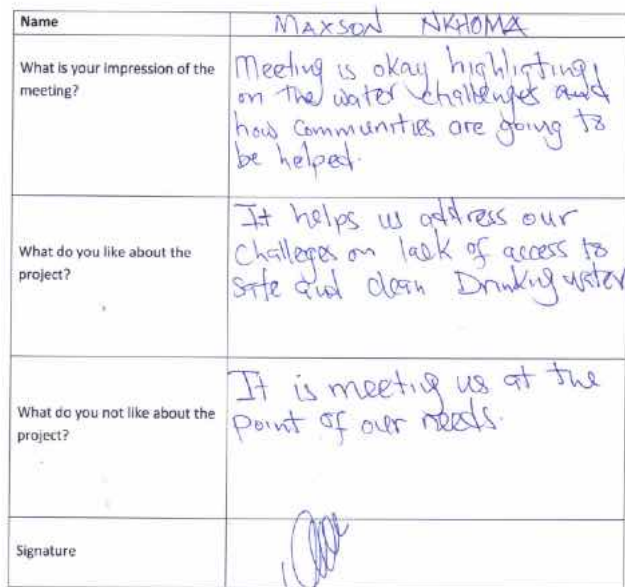 Name
MAXSON NKHOMA
What is your impression of the
meeting?
Meeting is okay highligting
on the water challenges and
how communities are going to
be helped.
What do you like about the
project?
It helps us address our
challeges on lack of access to
safe and clean Drinking water
What do you not like about the
project?
It is meeting us at the
point of our needs.
Signature